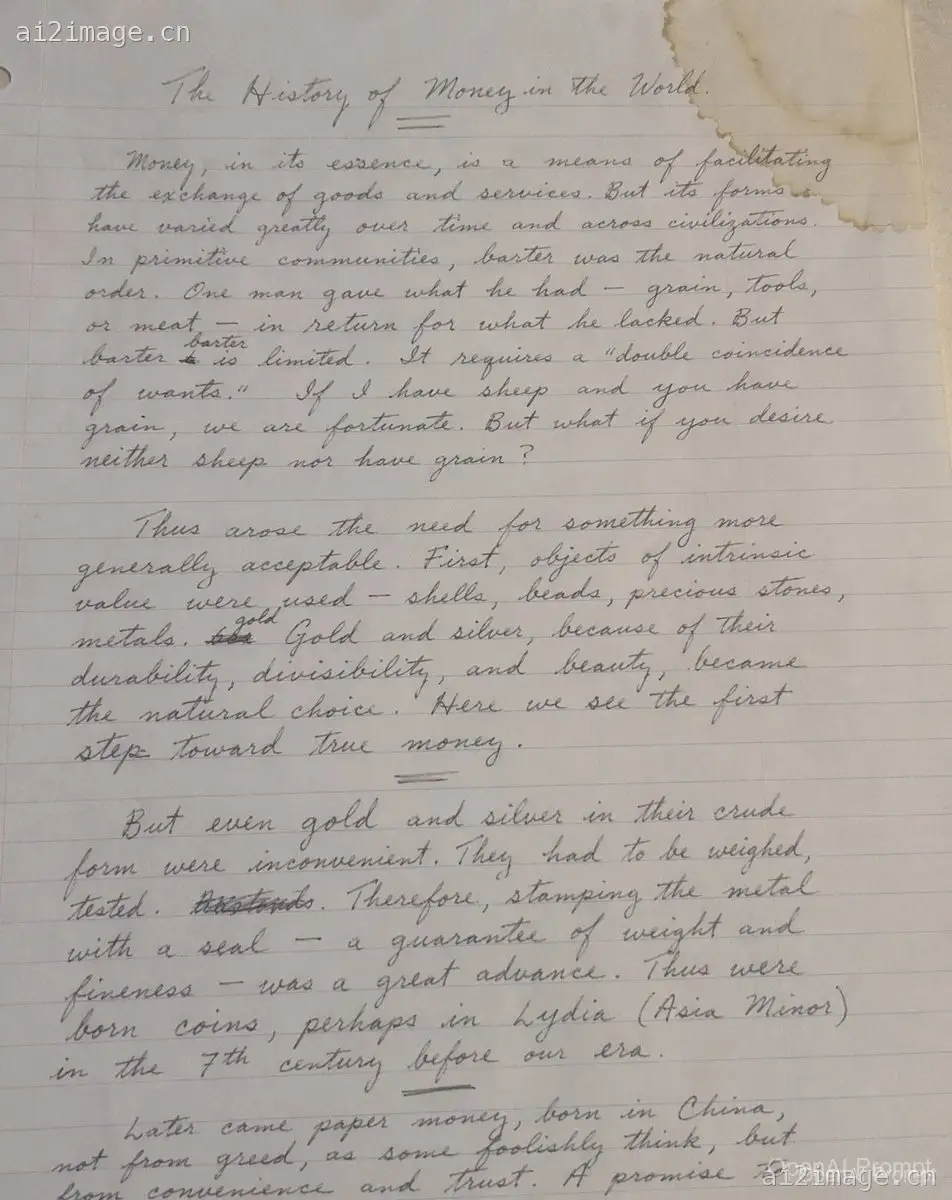 ai2image.cn
The History of Money in the World.
Money, in its essence, is a means of facilitating
the exchange of goods and services. But its forms
have varied greatly over time and across civilizations.
In primitive communities, barter was the natural
order. One man gave what he had – grain, tools,
or meat – in return for what he lacked. But
barter
barter is limited. It requires a "double coincidence
of wants." If I have sheep and you have
grain, we are fortunate. But what if you desire
neither sheep nor have grain?
Thus arose the need for something more
generally acceptable. First, objects of intrinsic
value were used – shells, beads, precious stones,
gold
metals. Gold and silver, because of their
durability, divisibility, and beauty, became
the natural choice. Here we see the first
step toward true money.
But even gold and silver in their crude
form were inconvenient. They had to be weighed,
tested. Therefore, stamping the metal
with a seal – a guarantee of weight and
fineness – was a great advance. Thus were
born coins, perhaps in Lydia (Asia Minor)
in the 7th century before our era.
Later came paper money, born in China,
not from greed, as some foolishly think, but
from convenience and trust. A promise
OpenAI Prompt
ai2image.cn